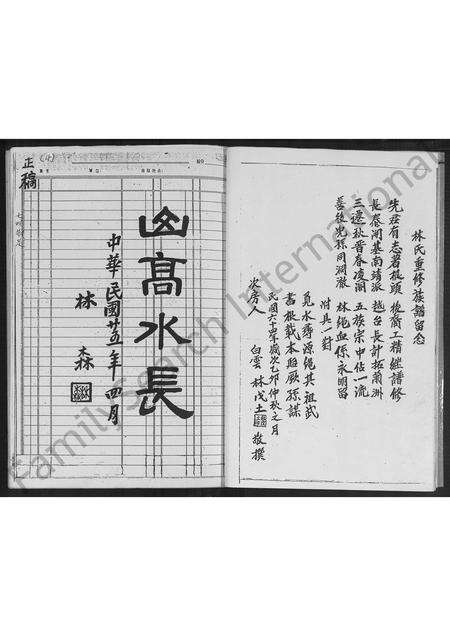 林氏重修族譜留念
先莊有志著敍頭 後裔工精繼譜修
長泰開基南靖派 越台長計拓蘭洲
三遷秋晋春凌澗 五族宗中佔一流
善後兒孫同潤澈 林繩血係永明留
附具一對
覓水尋源繩其祖武
書根載本貽厥孫謀
民國六十四年歲次乙卯仲秋之月
次房人 白雲 林戊土 敬撰
正稿
山高水長
中華民國廿五年四月
林森
FamilySearch International